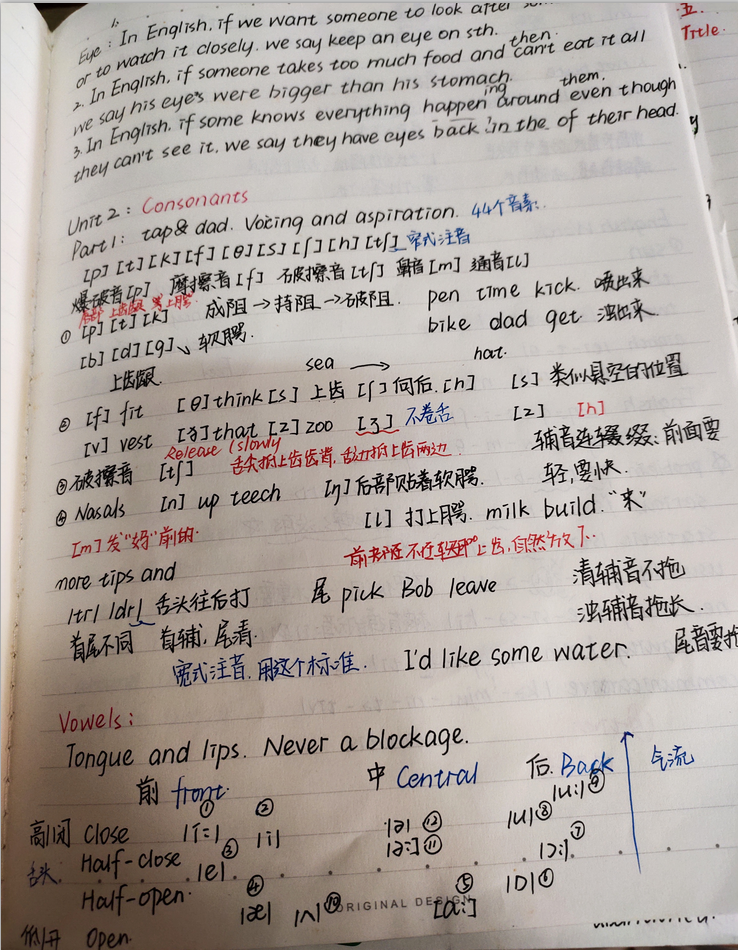 Eye: In English, if we want someone to look after
or to watch it closely. we say keep an eye on sth.
2. In English, if someone takes too much food and then can't eat it all
we say his eye's were bigger than his stomach.
3. In English, if some knows everything happening around them. even though
they can't see it. we say they have eyes back in the of their head.
五.
Title
Unit 2: Consonants
Part 1: tap & dad. Voicing and aspiration. 44个音素.
[p] [t] [k] [f] [θ] [s] [ʃ] [h] [tʃ] 宽式注音
爆破音[p] 摩擦音[f] 破擦音[tʃ] 鼻音[m] 通音[l]
① [p] [t] [k] 成阻→持阻→破阻. pen time kick. 喷出来
[b] [d] [g] 软腭. bike dad get. 浊出来.
上齿龈
sea → hat.
② [f] fit [θ] think [s] 上齿 [ʃ] 向后. [h] [s] 类似悬空的位置
[v] vest that [z] zoo [ʒ] 不卷舌 [z] [h]
Release (slowly 舌尖抵上齿齿龈, 舌边抵上齿两边
辅音连缀: 前面要
③ 破擦音 [tʃ]
轻, 要快.
④ Nasals [n] up teech [ŋ] 后部贴着软腭.
[l] 打上腭. milk build. "来"
[m] 发"妈"前的.
more tips and
尾 pick Bob leave 清辅音不拖
|tr| |dr| 舌头往后打
浊辅音拖长.
首尾不同 首辅, 尾清.
I'd like some water. 尾音要拖
宽式注音, 用这个标准.
Vowels:
Tongue and lips. Never a blockage.
前 front 中 Central 后. Back 气流
高/闭 Close |i:| ① |i| ② |ə| ⑫ |u| ⑧ |u:| ⑨
舌头. Half-close |e| ③ |ə:| ⑪ |ɔ:| ⑦
Half-open. |æ| ④ |ʌ| ⑩ [ɑ:] ⑤ |ɒ|
ORIGINAL DESIGN
低/开 Open.